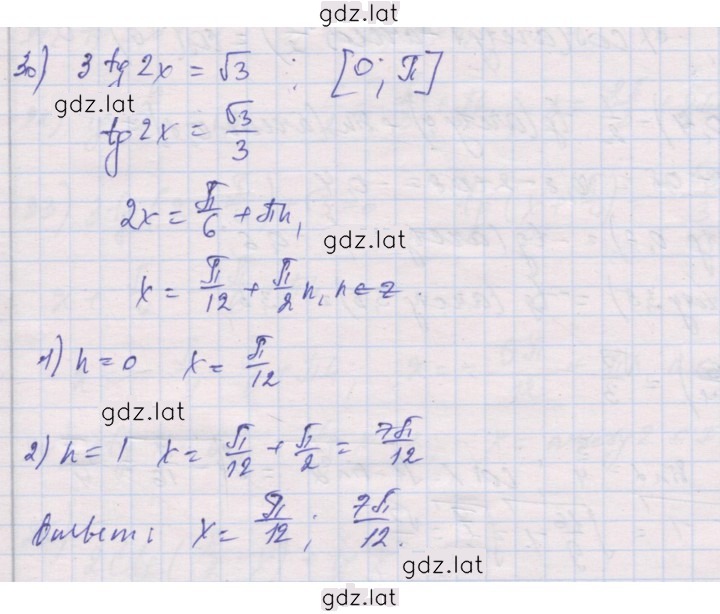 gdz.lat
30) 3 tg 2x = √3 ; [0; π]
gdz.lat
tg 2x = √3/3
2x = π/6 + πn,
gdz.lat
x = π/12 + π/2 n, n ∈ z.
1) n = 0 x = π/12
gdz.lat
2) n = 1 x = π/12 + π/2 = 7π/12
Ответ: x = π/12; 7π/12.
gdz.lat
gdz.lat